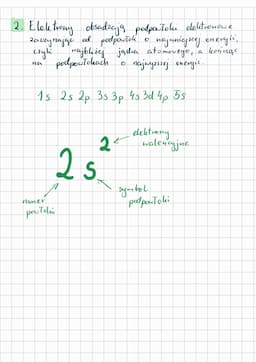 2. Elektrony obsadzają podpowłoki elektronowe
zaczynając od podpowłok o najmniejszej energii,
czyli najbliżej jądra atomowego, a kończąc
na podpowłokach o najwyższej energii.
1s 2s 2p 3s 3p 4s 3d 4p 5s
2s²
elektrony
walencyjne
numer
powłoki
symbol
podpowłoki